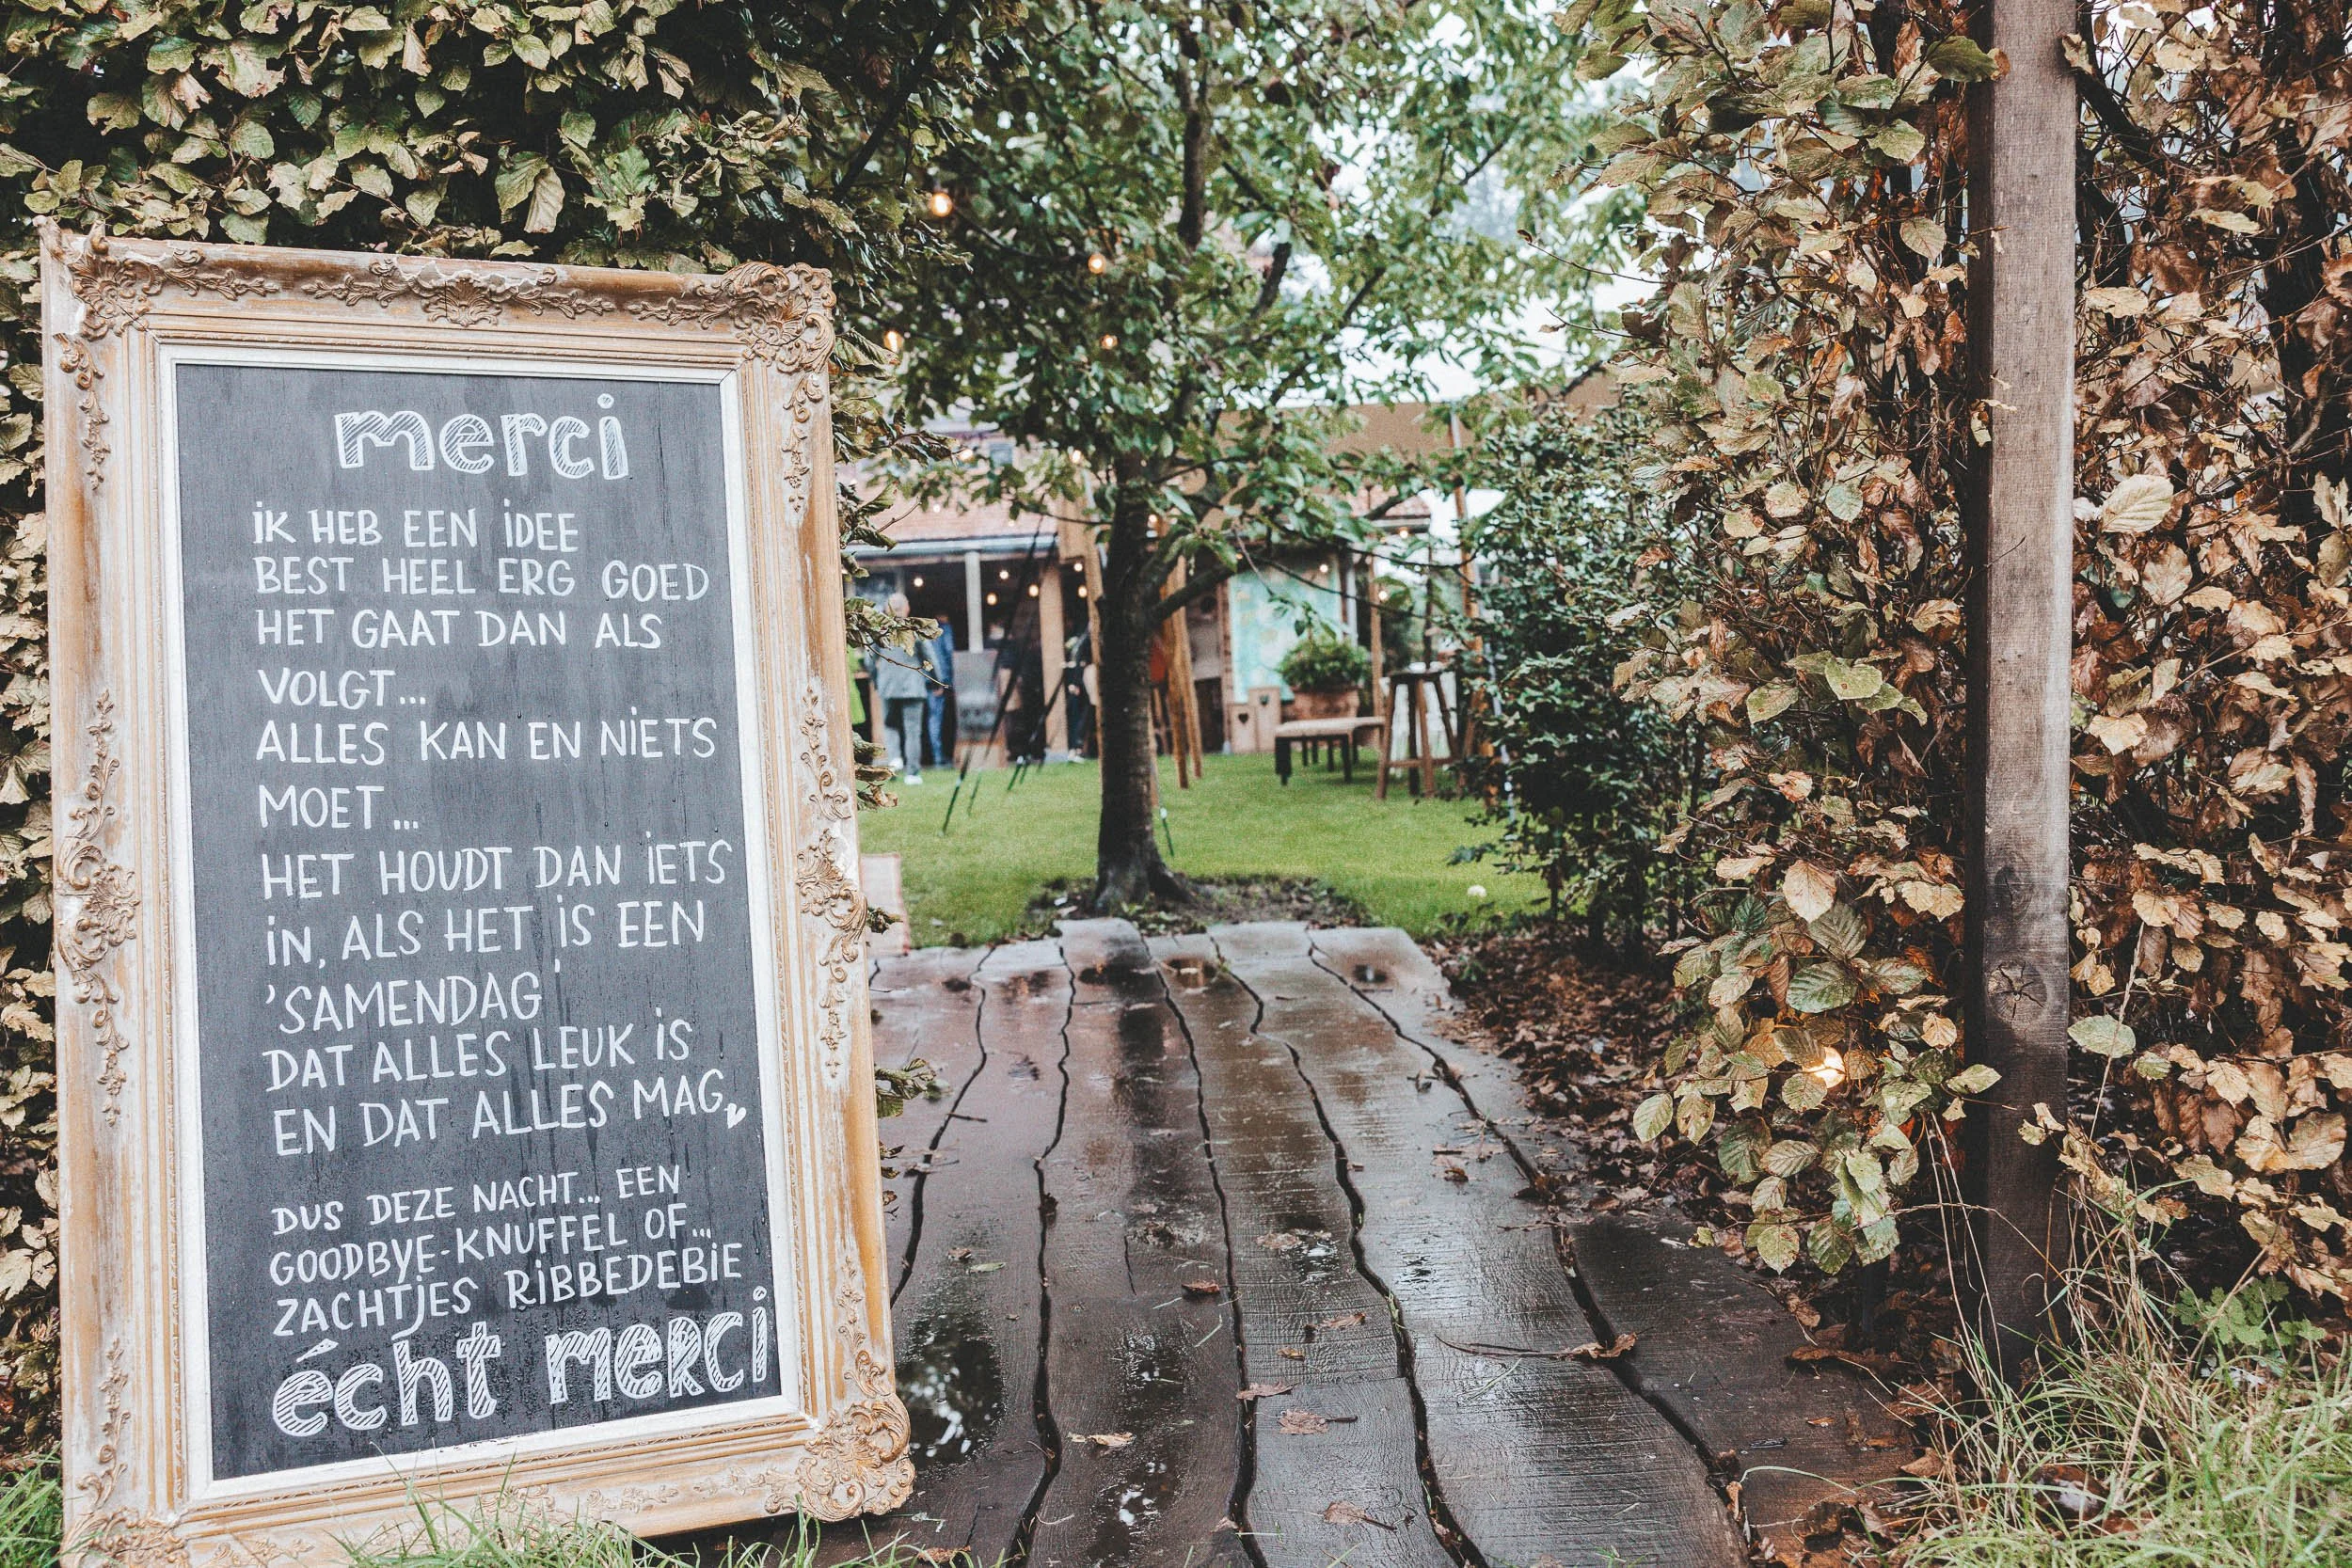 merci
iK HEB EEN iDEE
BEST HEEL ERG GOED
HET GAAT DAN ALS
VOLGT...
ALLES KAN EN NiETS
MOET...
HET HOUDT DAN iETS
iN, ALS HET iS EEN
'SAMENDAG'
DAT ALLES LEUK iS
EN DAT ALLES MAG
DUS DEZE NACHT... EEN
GOODBYE-KNUFFEL OF...
ZACHTJES RiBBEDEBiE
écht merci